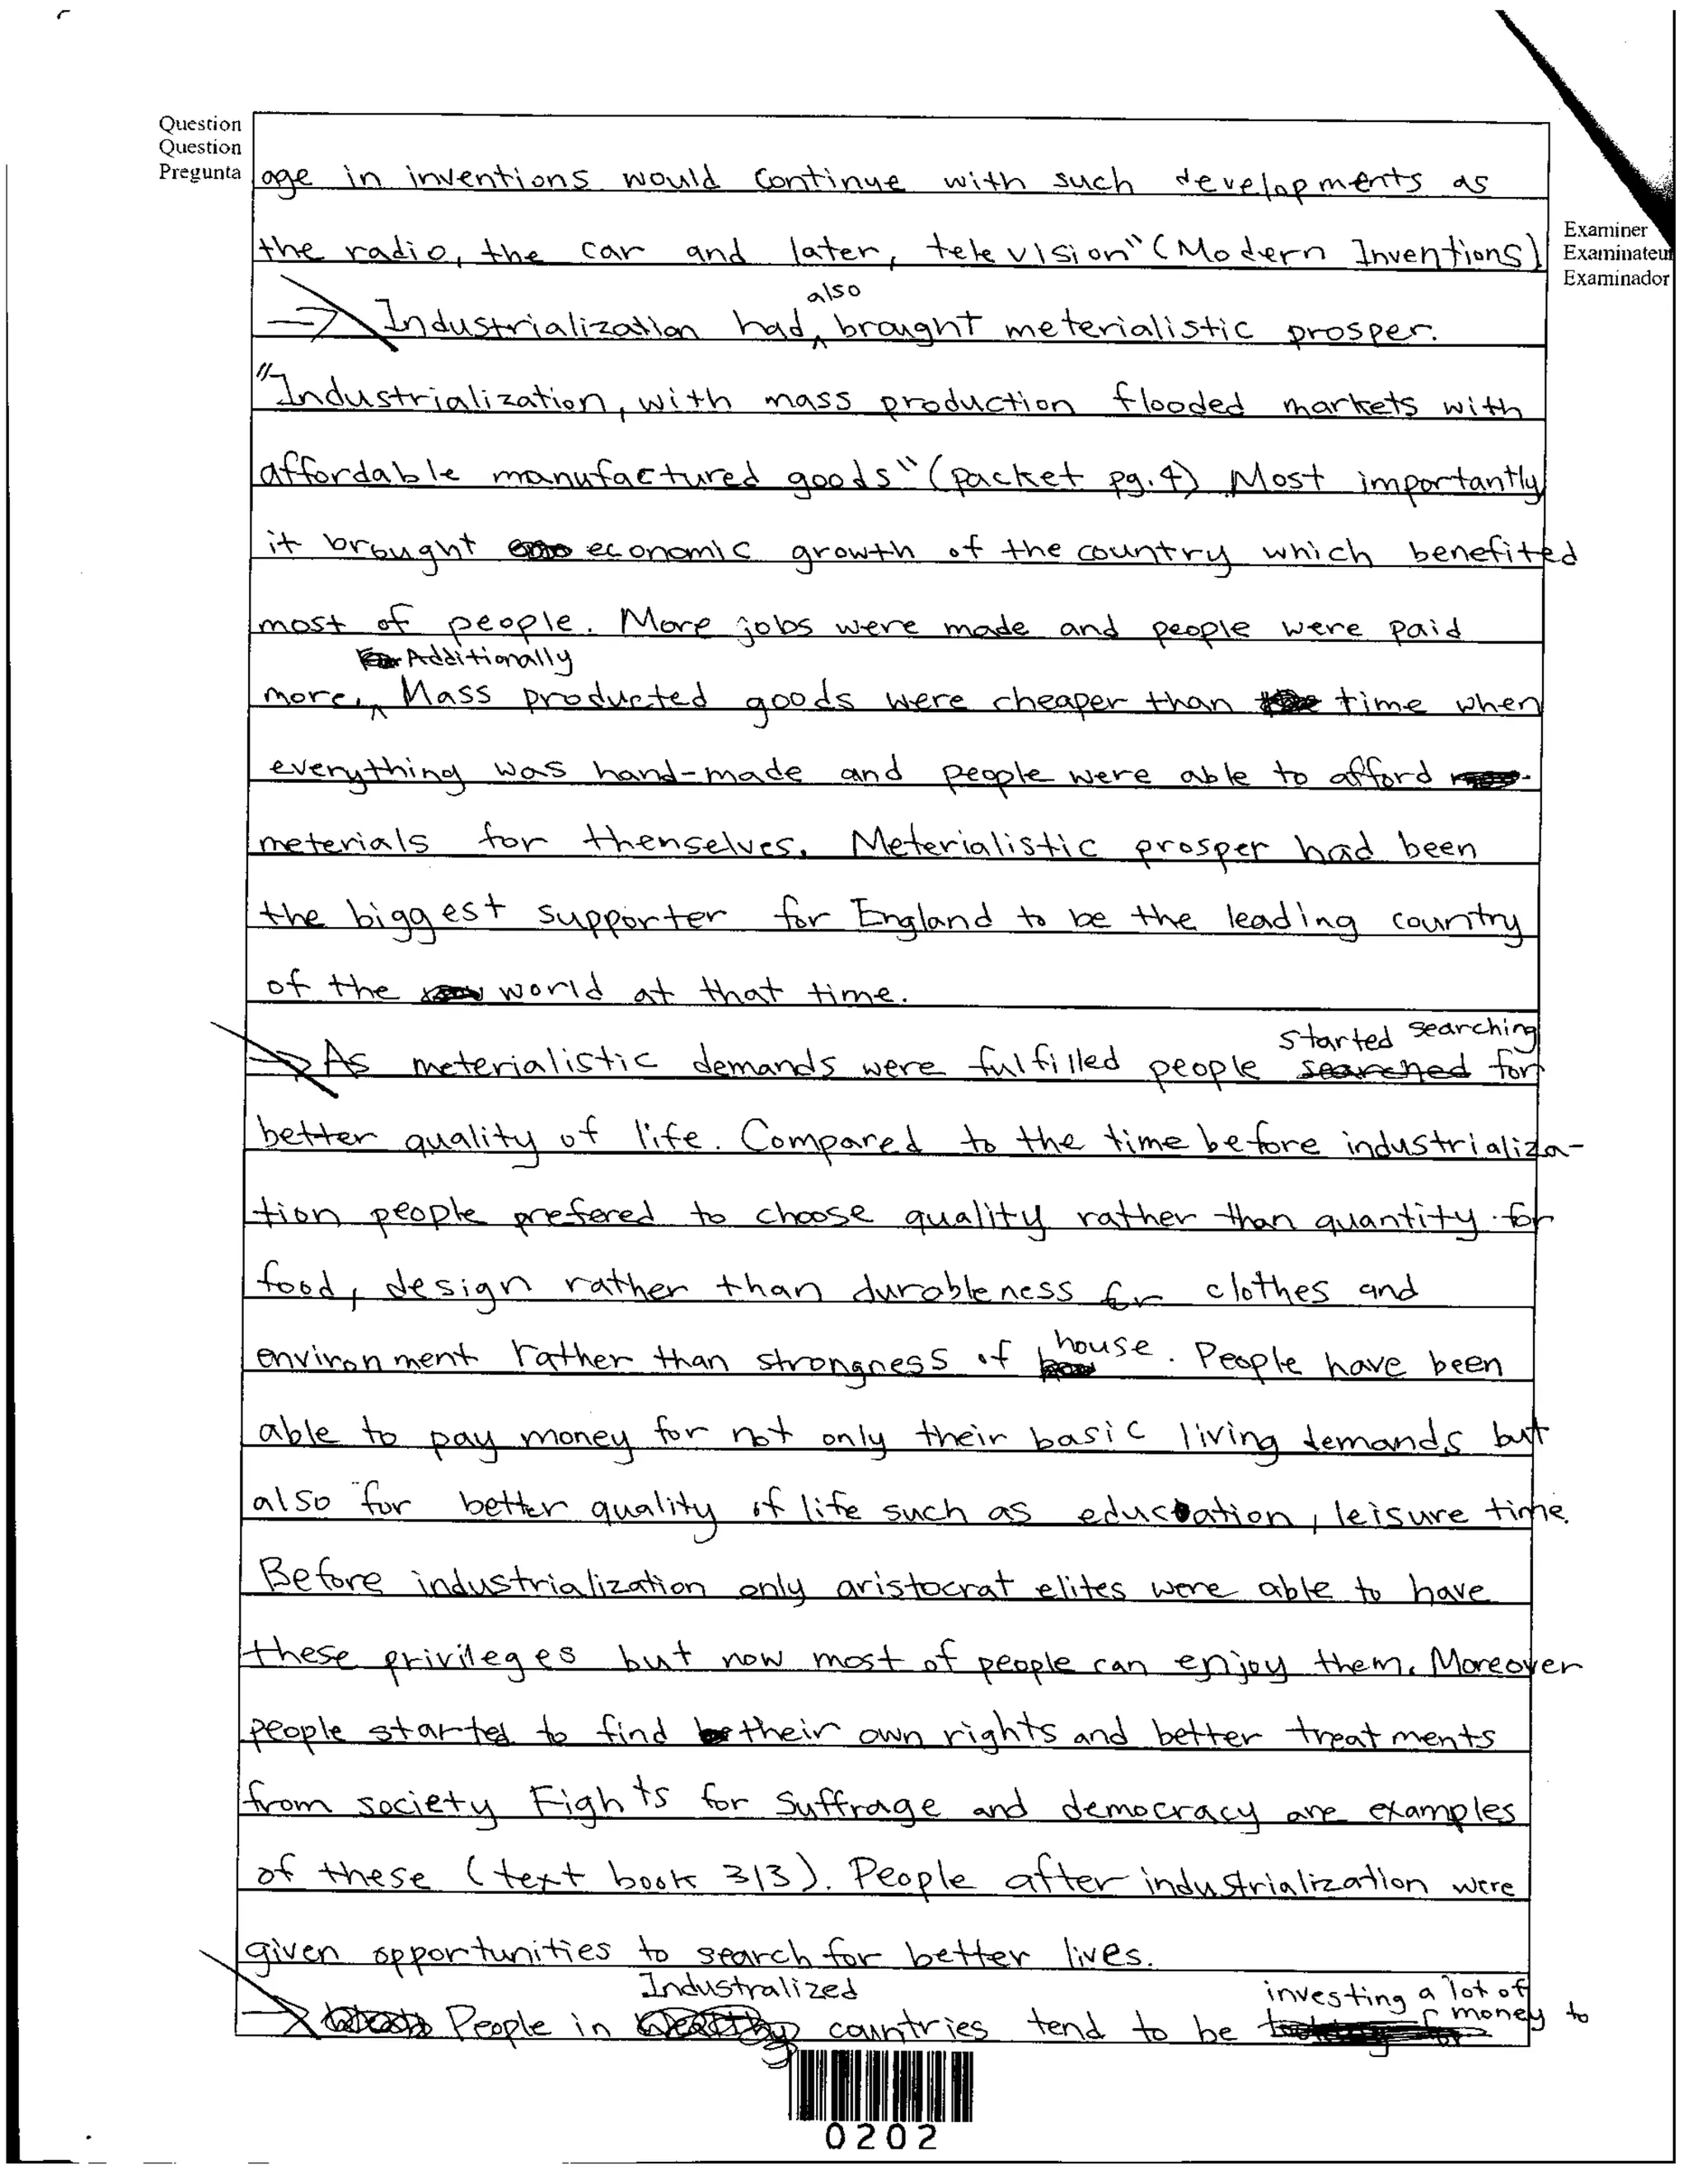 Question
Question
Pregunta
Examiner
Examinateur
Examinador
age in inventions would continue with such developments as
the radio, the car and later, television" (Modern Inventions)
→ Industrialization had also brought meterialistic prosper.
"Industrialization, with mass production flooded markets with
affordable manufactured goods" (packet pg.4) Most importantly
it brought economic growth of the country which benefited
most of people. More jobs were made and people were paid
more. Additionally Mass producted goods were cheaper than time when
everything was hand-made and people were able to afford
meterials for themselves. Meterialistic prosper had been
the biggest supporter for England to be the leading country
of the world at that time.
→ As meterialistic demands were fulfilled people started searching for
better quality of life. Compared to the time before industrializa-
tion people prefered to choose quality rather than quantity for
food, design rather than durableness for clothes and
environment rather than strongness of house. People have been
able to pay money for not only their basic living demands but
also for better quality of life such as education, leisure time.
Before industrialization only aristocrat elites were able to have
these privileges but now most of people can enjoy them. Moreover
people started to find their own rights and better treatments
from society Fights for suffrage and democracy are examples
of these (text book 313). People after industrialization were
given opportunities to search for better lives.
→ People in Industralized countries tend to be investing a lot of money to
0202